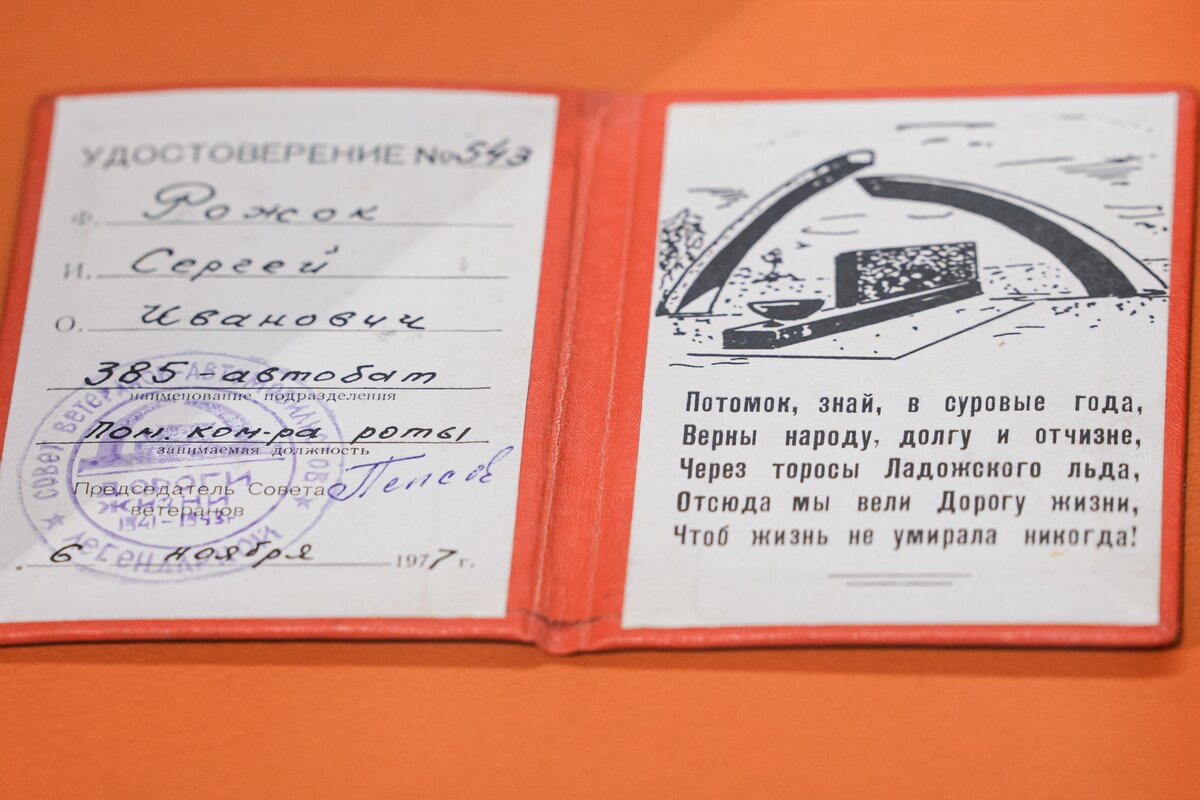 УДОСТОВЕРЕНИЕ №543
Ф. Рожок
И. Сергей
О. Иванович
385 автобат
наименование подразделения
Пом. ком-ра роты
занимаемая должность
Председатель Совета
ветеранов
6 ноября 1977 г.
СОВЕТ ВЕТЕРАНОВ АВТОМОБИЛИСТОВ
ЛЕГЕНДАРНОЙ
ДОРОГИ
ЖИЗНИ
1941-1943г
Потомок, знай, в суровые года,
Верны народу, долгу и отчизне,
Через торосы Ладожского льда,
Отсюда мы вели Дорогу жизни,
Чтоб жизнь не умирала никогда!